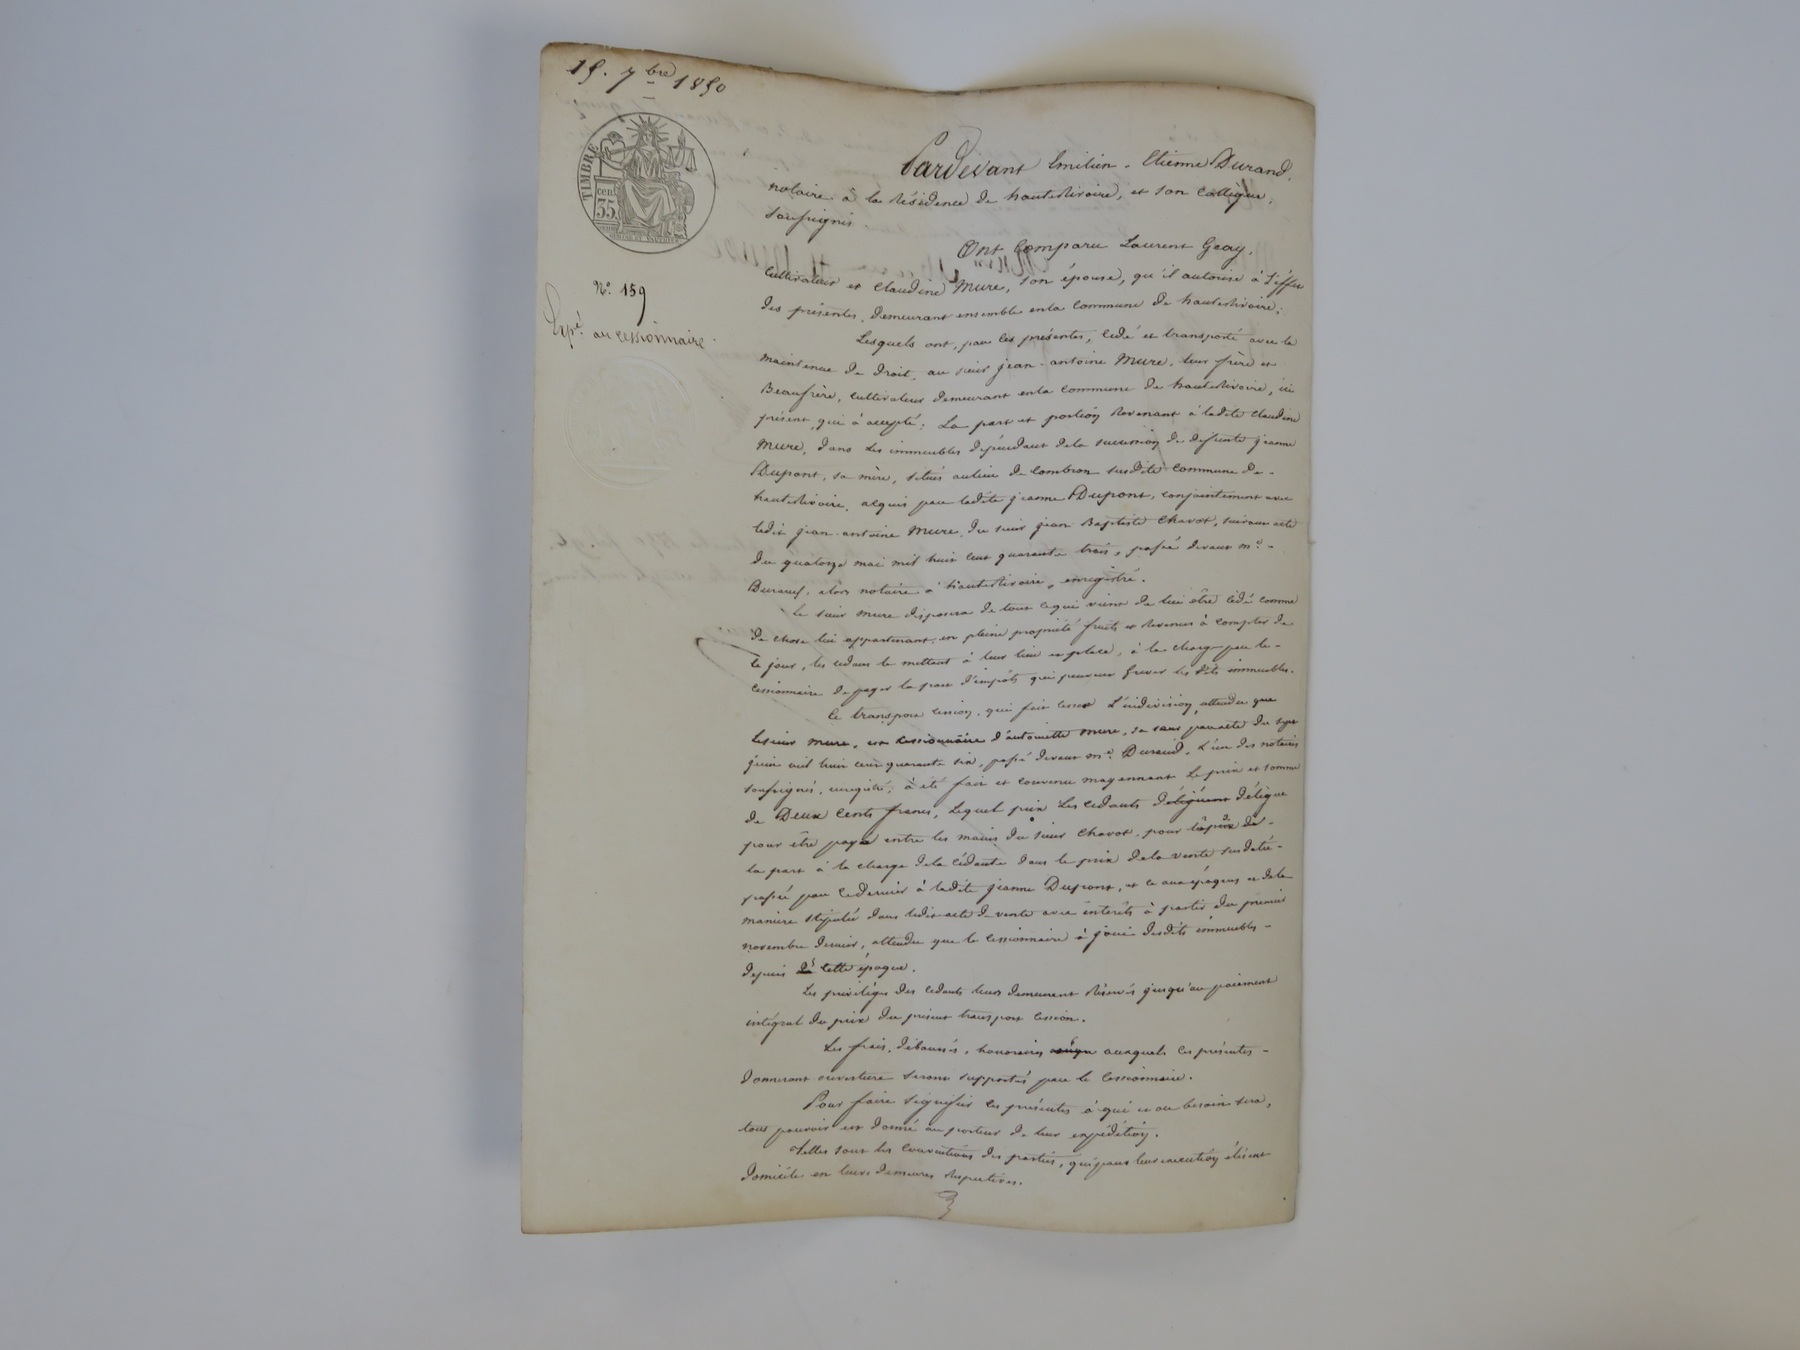 15. 7bre 1850
TIMBRE
cent
35
No. 159
Expé. au cessionnaire.
Pardevant Emilien-Etienne Durand,
notaire à la Résidence de hauterivoire, et son Collègue,
soussignés
Ont Comparu Laurent Geay,
Cultivateur et Claudine Mure, son épouse, qu'il autorise à l'effet
des présentes, demeurant ensemble en la Commune de hauterivoire;
Lesquels ont, par les présentes, cédé et transporté avec la
maintenue de droit, au sieur jean-antoine Mure, leur frère et
Beaufrère, cultivateur demeurant en la Commune de hauterivoire, ici
présent, qui à accepté: La part et portion Revenant à ladite Claudine
Mure, dans les immeubles dépendant de la succession de defunte jeanne
Dupont, sa mère, situés au lieu de Combron susdite Commune de -
hauterivoire, acquis par ladite jeanne Dupont, conjointement avec
ledit jean-antoine Mure, du sieur jean Baptiste Chavot, suivant acte
du quatorze mai mil huit cent quarante trois, passé devant me. -
alors notaire à hauterivoire, enregistré.
Le sieur Mure disposera de tout ce qui vient de lui être cédé comme
de chose lui appartenant, en pleine propriété fruits et Revenus à compter de
ce jour, les cédans le mettant à leur lieu et place, à la charge par le -
cessionnaire de payer la part d'impôts qui peuvent Grever les dits immeubles.
Ce transport cession, qui fait cesser L'indivision, attendu que
le sieur Mure, est Cessionnaire d'antoinette Mure, sa sœur par acte du sept
juin mil huit cent quarante six, passé devant me. Durand, L'un des notaires
soussignés, enregistré, à été fait et convenu moyennant Le prix et somme
de Deux Cents francs, Lequel prix Les cédants délèguent
pour être payé entre les mains du sieur Chavot, pour
la part à la charge de la cédante dans le prix de la vente susdatée -
passée par ce dernier à ladite jeanne Dupont, et ce aux époques et de la
manière stipulée dans ledit acte de vente avec intérêts à partir du premier
novembre dernier, attendu que le Cessionnaire à joui desdits immeubles -
depuis cette époque.
Les privilèges des cédants leurs demeurent Réservés jusqu'au paiement
intégral du prix du présent transport Cession.
Les frais, déboursés, honoraires auxquels les présentes -
donneront ouverture seront supportés par le Cessionnaire.
Pour faire signifier les présentes à qui et au besoin sera,
tout pouvoir est donné au porteur de leur expédition.
Telles sont les Conventions des parties, qui pour leur exécution élisent
domicile en leurs demeures Respectives.